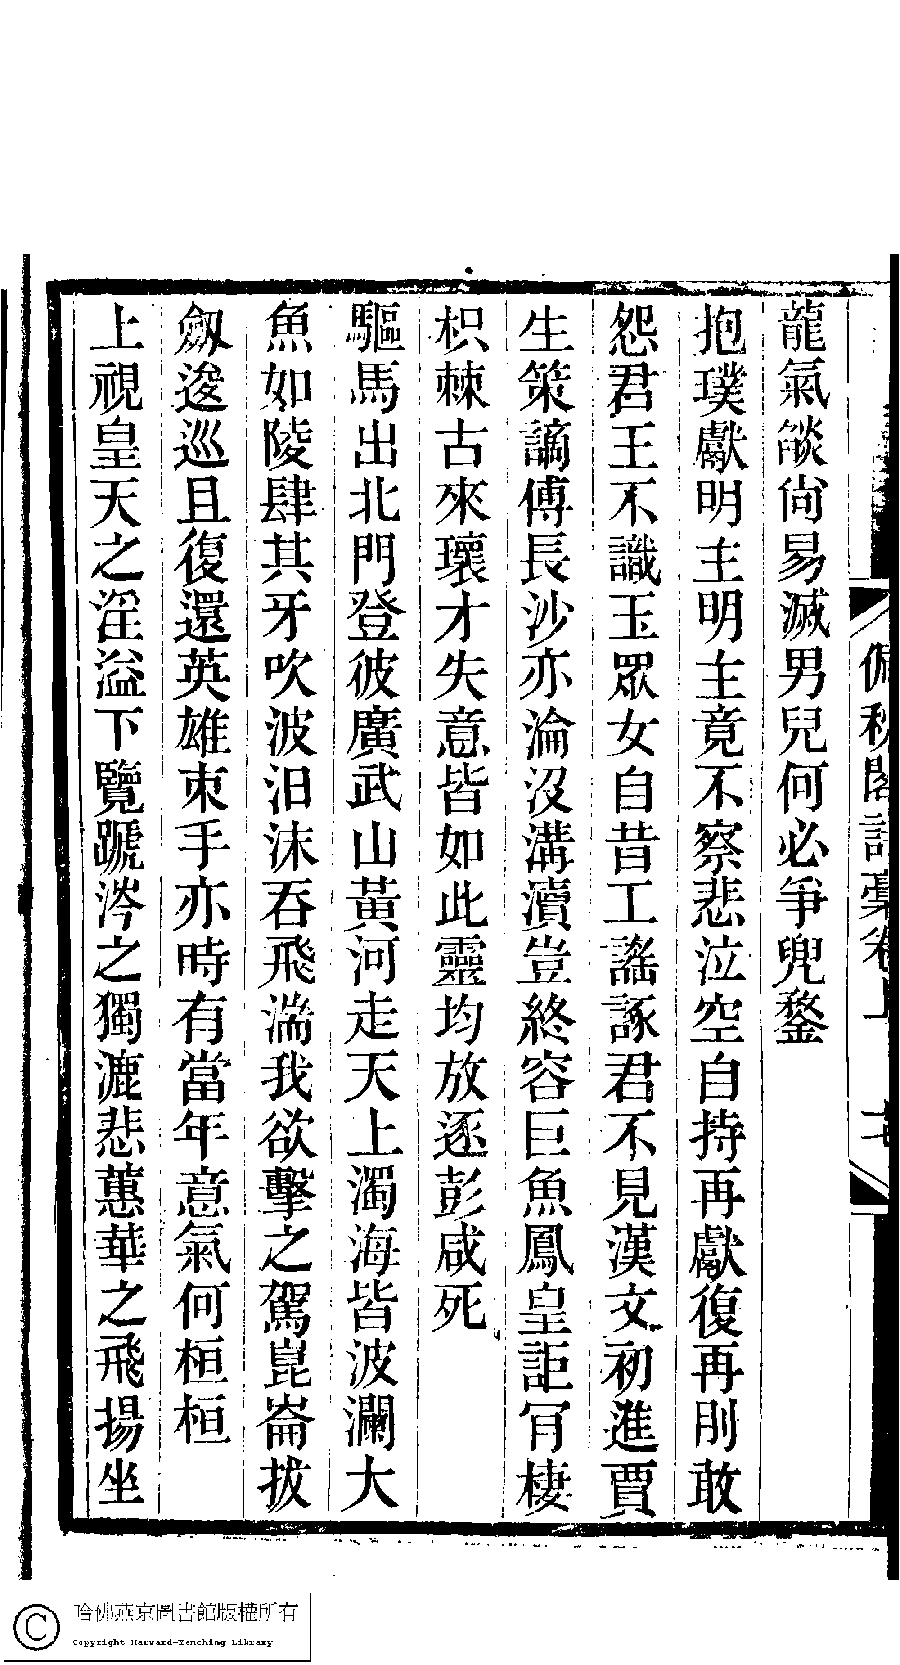 佩秋閣詩稾卷上 七
龍氣燄尙易滅男兒何必爭兜鍪
抱璞獻明主明主竟不察悲泣空自持再獻復再刖敢
怨君王不識玉眾女自昔工謠諑君不見漢文初進賈
生策謫傅長沙亦淪沒溝瀆豈終容巨魚鳳皇詎肎棲
枳棘古來瓌才失意皆如此靈均放逐彭咸死
驅馬出北門登彼廣武山黃河走天上濁海皆波瀾大
魚如陵肆其牙吹波汨沫吞飛湍我欲擊之駕崑崙拔
劔逡巡且復還英雄束手亦時有當年意氣何桓桓
上視皇天之淫溢下覽蹏涔之獨漉悲蕙華之飛揚坐
哈佛燕京圖書館版權所有
Copyright Harvard-Yenching Library